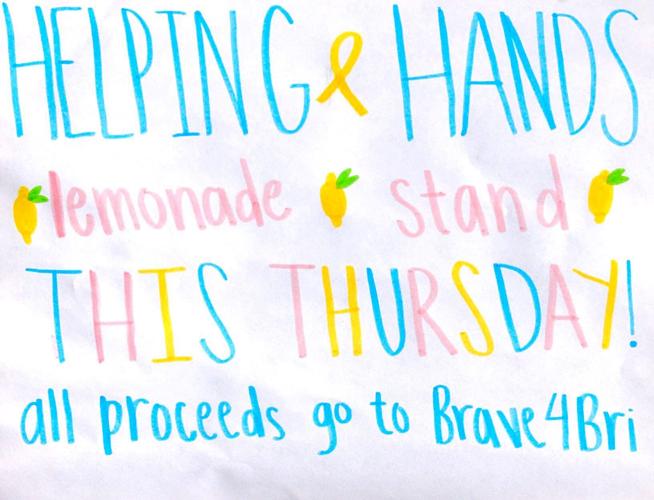 HELPING HANDS
lemonade stand
THIS THURSDAY!
all proceeds go to Brave4Bri